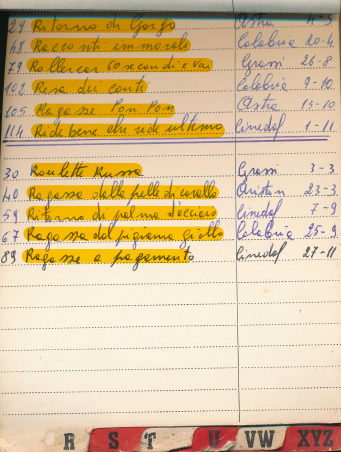 29 Ritorno di Gorgo Astra 4-3
48 Racconti immorali Calabria 20-4
79 Rollercar 60 secondi e vai Grassi 26-8
102 Resa dei conti Calabria 9-10
105 Ragasse Pon Pon Astra 13-10
114 Ride bene chi ride ultimo Cinedol 1-11
30 Roulette Russa Grassi 3-3
40 Ragassa dalla pelle di corallo Ariston 23-3
59 Ritorno di palma d'acciaio Cinedol 7-9
67 Ragassa dal pigiama giallo Calabria 25-9
89 Ragasse a pagamento Cinedol 27-11
R S T U VW XYZ